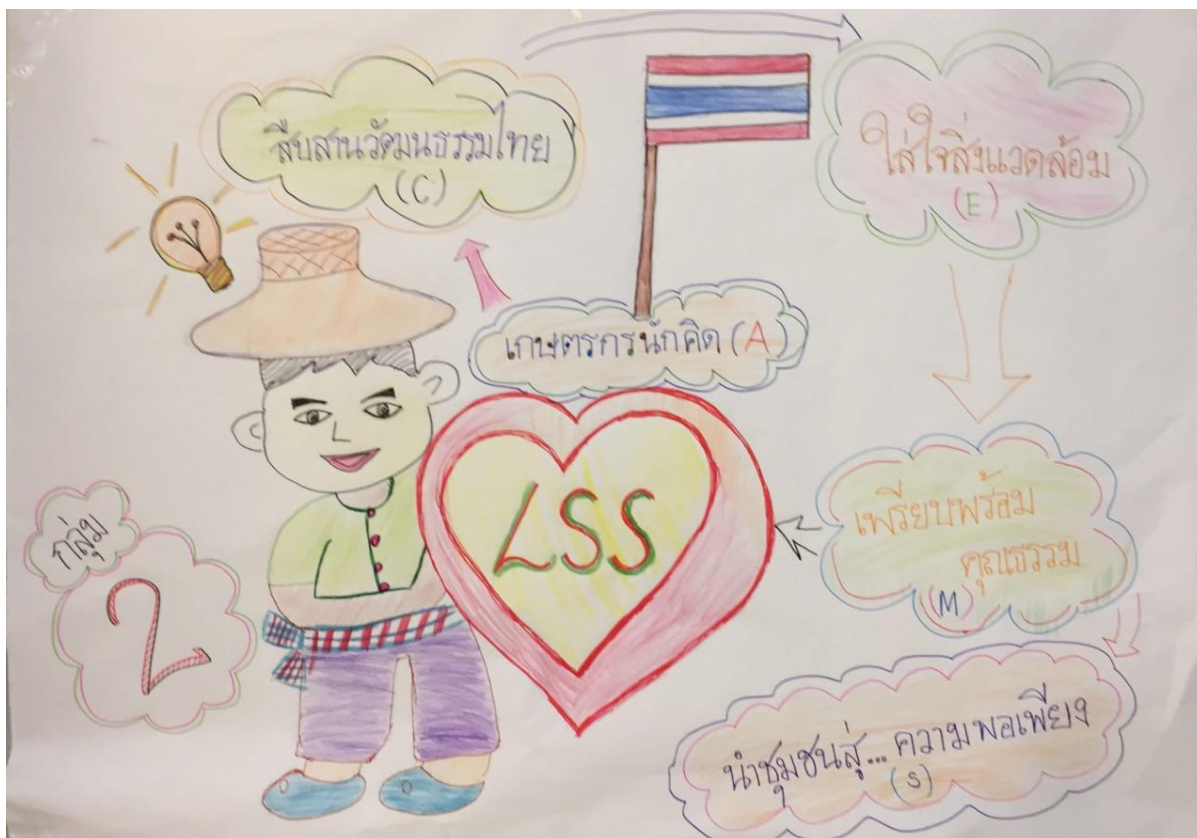 สืบสานวัฒนธรรมไทย
(C)
ใส่ใจสิ่งแวดล้อม
(E)
เกษตรกรนักคิด (A)
LSS
เพรียบพร้อม
คุณธรรม
(M)
กลุ่ม
2
นำชุมชนสู่... ความพอเพียง
(S)